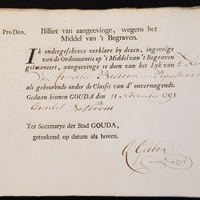 Pro Deo.
Billiet van aangeevinge, wegens het
Middel van 't Begraven.
Ik ondergeschreve verklare by dezen, ingevolge
van de Ordonnantie op 't Middel van 't Begraven
geëmaneert, aangeevinge te doen van het Lyk van
als gehoorende onder de Classis van d' onvermogende.
Gedaan binnen GOUDA den 11 November 1791
Cornelis
Ter Secretarye der Stad GOUDA,
getekend op datum als boven.